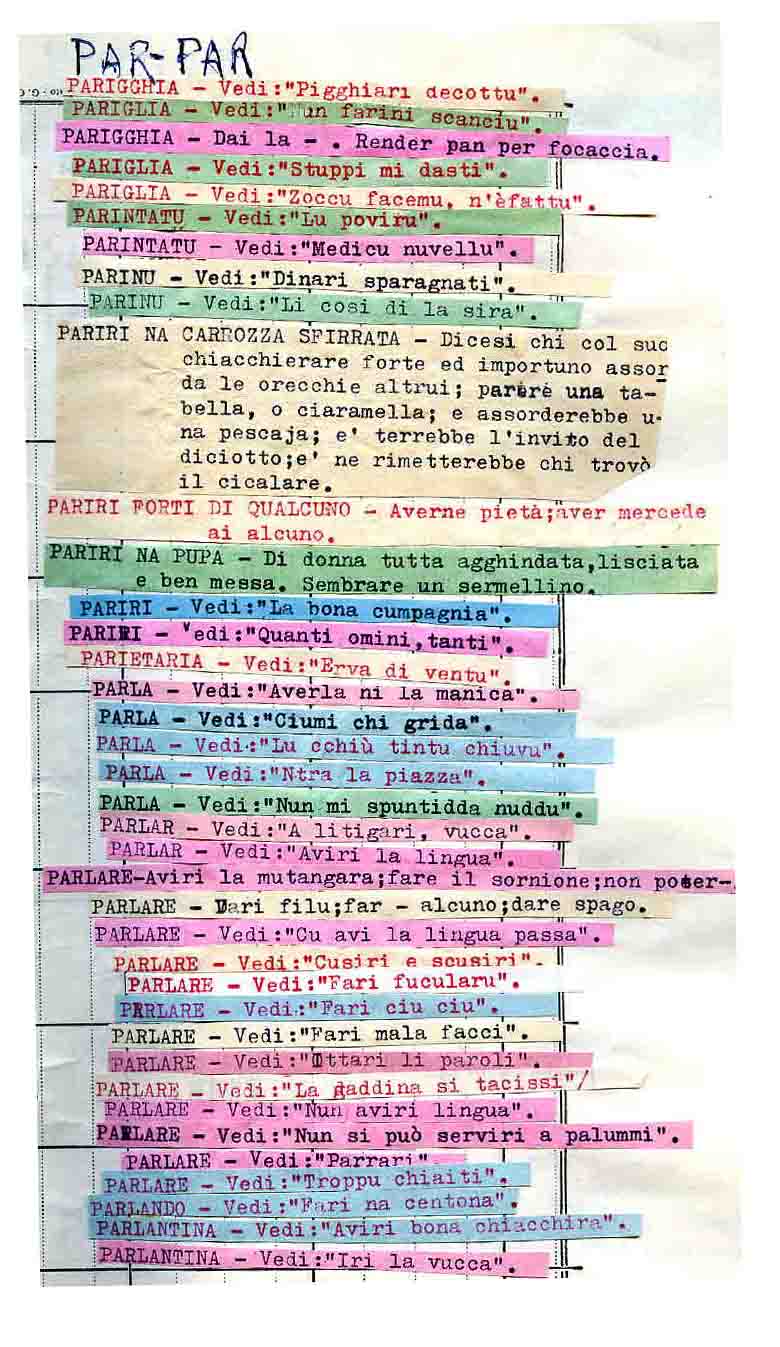 PAR-PAR
PARIGGHIA - Vedi:"Pigghiari decottu".
PARIGLIA - Vedi:"Nun farini scanciu".
PARIGGHIA - Dai la - . Render pan per focaccia.
PARIGLIA - Vedi:"Stuppi mi dasti".
PARIGLIA - Vedi:"Zoccu facemu, n'èfattu".
PARINTATU - Vedi:"Lu poviru".
PARINTATU - Vedi:"Medicu nuvellu".
PARINU - Vedi:"Dinari sparagnati".
PARINU - Vedi:"Li cosi di la sira".
PARIRI NA CARROZZA SFIRRATA - Dicesi chi col suo
chiacchierare forte ed importuno assor
da le orecchie altrui; parere una ta-
bella, o ciaramella; e assorderebbe u-
na pescaja; e' terrebbe l'invito del
diciotto;e' ne rimetterebbe chi trovò
il cicalare.
PARIRI FORTI DI QUALCUNO - Averne pietà;aver mercede
ai alcuno.
PARIRI NA PUPA - Di donna tutta agghindata,lisciata
e ben messa. Sembrare un sermellino.
PARIRI - Vedi:"La bona cumpagnia".
PARIRI - Vedi:"Quanti omini,tanti".
PARIETARIA - Vedi:"Erva di ventu".
PARLA - Vedi:"Averla ni la manica".
PARLA - Vedi:"Ciumi chi grida".
PARLA - Vedi:"Lu cchiù tintu chiuvu".
PARLA - Vedi:"Ntra la piazza".
PARLA - Vedi:"Nun mi spuntidda nuddu".
PARLAR - Vedi:"A litigari, vucca".
PARLAR - Vedi:"Aviri la lingua".
PARLARE-Aviri la mutangara;fare il sornione;non poter-
PARLARE - Dari filu;far - alcuno;dare spago.
PARLARE - Vedi:"Cu avi la lingua passa".
PARLARE - Vedi:"Cusiri e scusiri".
PARLARE - Vedi:"Fari fucularu".
PARLARE - Vedi:"Fari ciu ciu".
PARLARE - Vedi:"Fari mala facci".
PARLARE - Vedi:"Ittari li paroli".
PARLARE - Vedi:"La gaddina si tacissi"/
PARLARE - Vedi:"Nun aviri lingua".
PARLARE - Vedi:"Nun si può serviri a palummi".
PARLARE - Vedi:"Parrari"
PARLARE - Vedi:"Troppu chiaiti".
PARLANDO - Vedi:"Fari na centona".
PARLANTINA - Vedi:"Aviri bona chiacchira".
PARLANTINA - Vedi:"Iri la vucca".